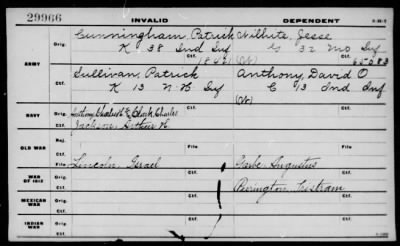 29966 INVALID DEPENDENT
ARMY
Orig. Cunningham, Patrick Wilhite, Jesse
K 38 Ind Inf G 32 Mo Inf
(W) 65083
Ctf. Sullivan, Patrick Anthony, David O
K 13 N-H Inf C 13 Ind Inf
(W)
NAVY
Orig. Clark, Charles
Ctf. Jackson, Arthur H.
OLD WAR
Rej.
File Lincoln, Israel File
WAR OF 1812
Orig. Garbe, Augustus
Ctf. Ctf. Purington, Tristram
MEXICAN WAR
Orig.
Ctf. Ctf.
INDIAN WAR
Orig.
Ctf. Ctf.